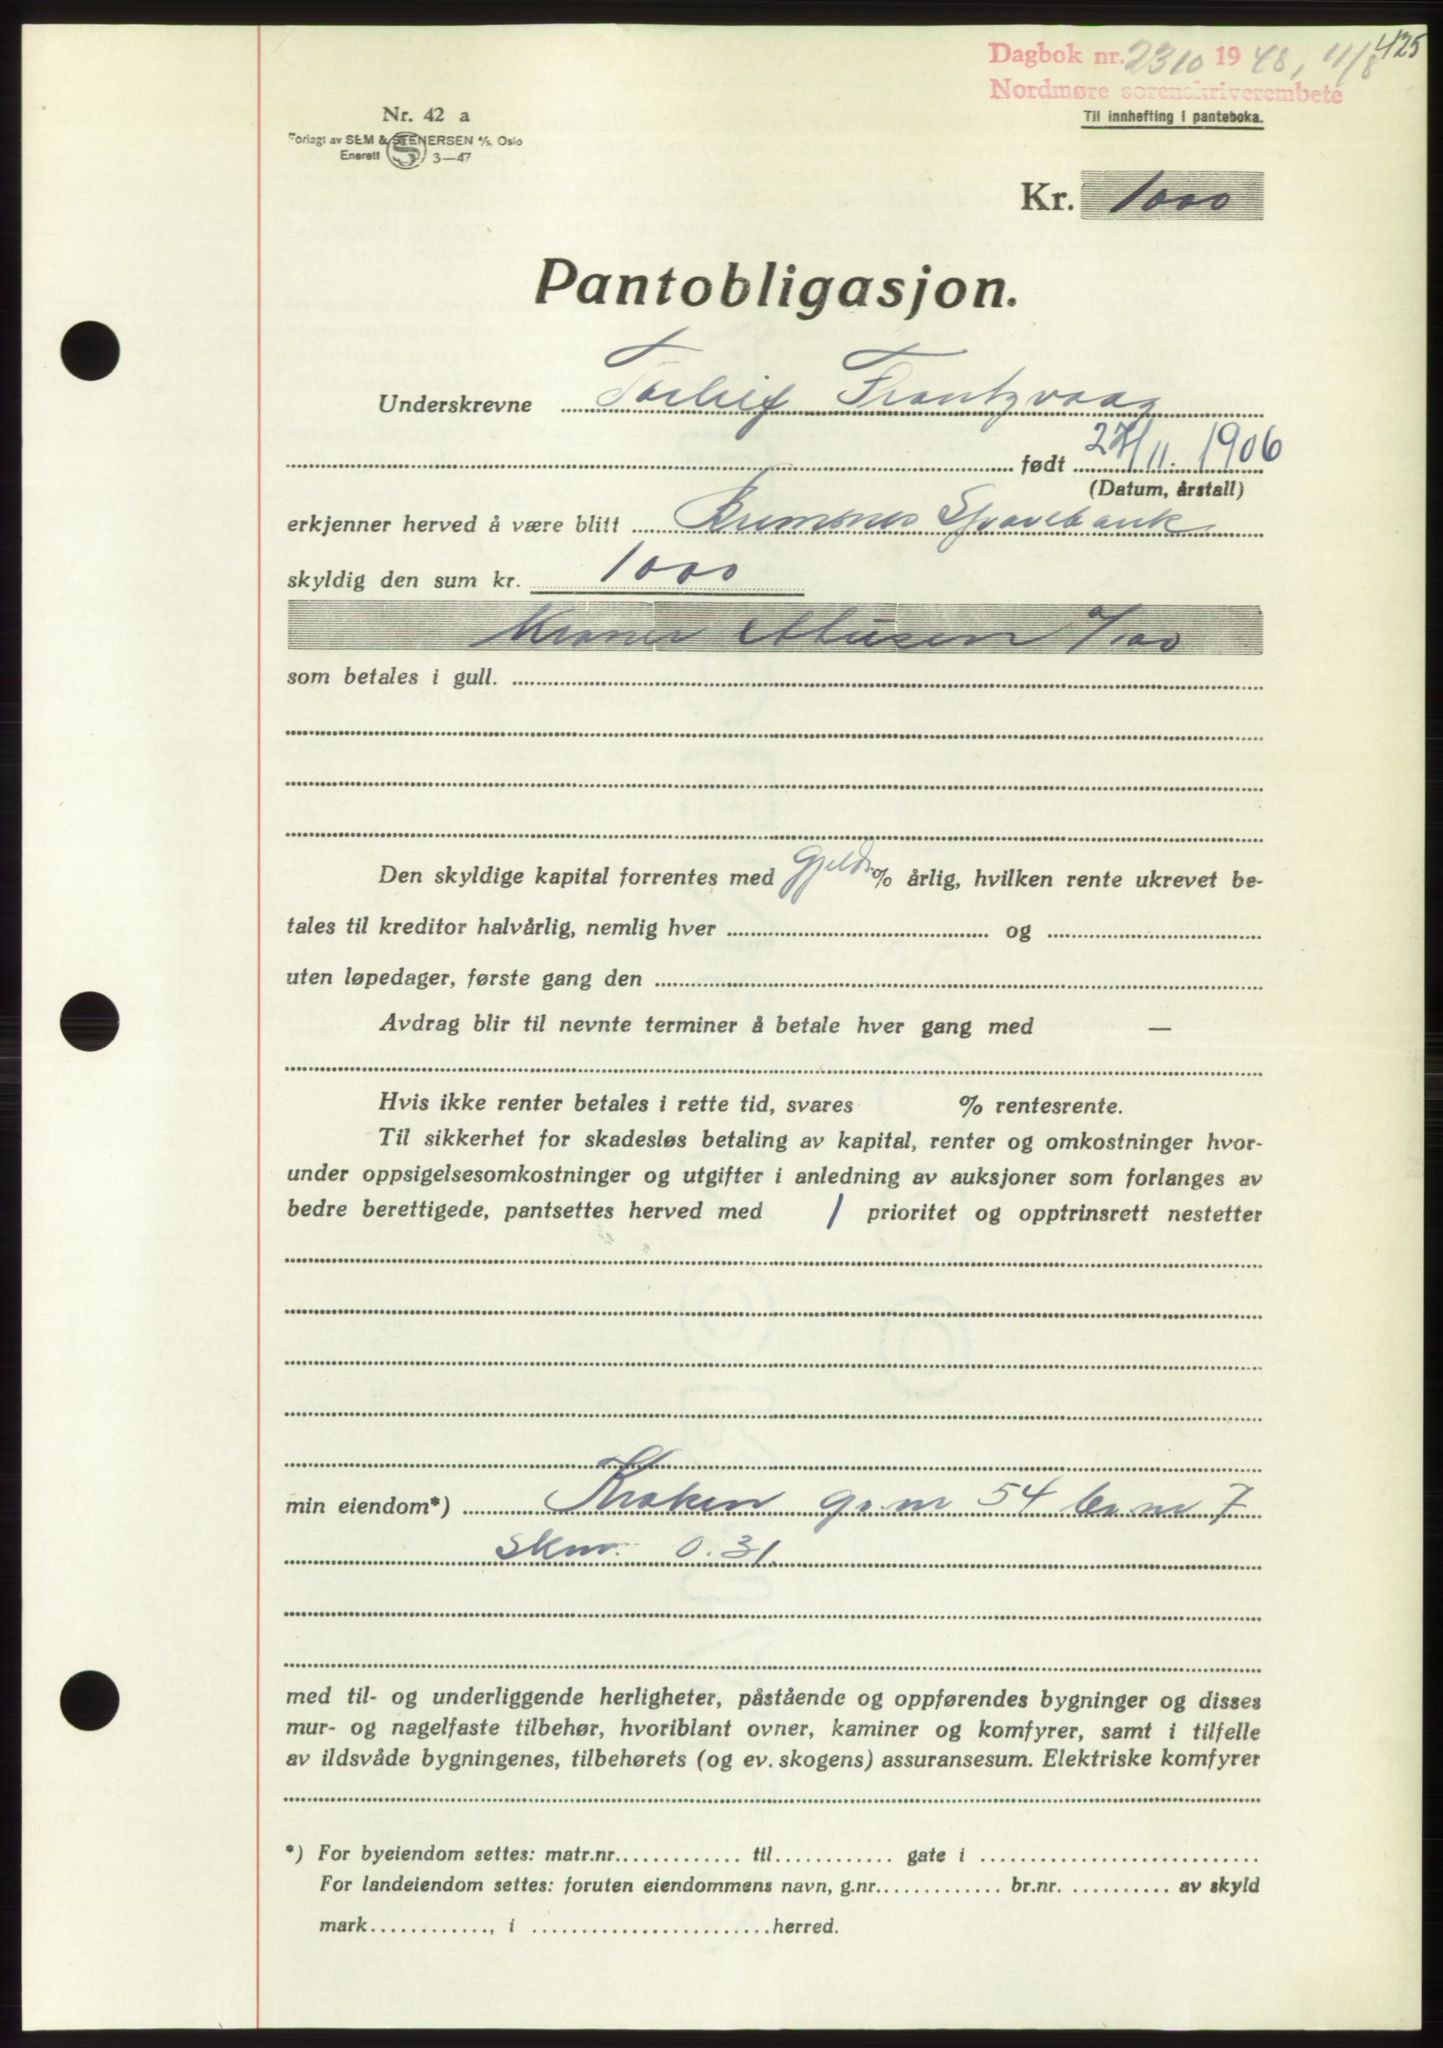 425
Dagbok nr. 2310 1948, 11/8
Nordmøre sorenskriverembete
Til innhefting i panteboka.
Nr. 42 a
Forlagt av SEM & STENERSEN A/S, Oslo
Enerett 3—47
Kr. 1000
Pantobligasjon.
Underskrevne Torleif Frantzvaag
født 27/11. 1906
(Datum, årstall)
erkjenner herved å være blitt Bremsnes Sparebank
skyldig den sum kr. 1000
Kroner Ettusen 0/00
som betales i gull.
Den skyldige kapital forrentes med gjeld. % årlig, hvilken rente ukrevet be-
tales til kreditor halvårlig, nemlig hver og
uten løpedager, første gang den
Avdrag blir til nevnte terminer å betale hver gang med —
Hvis ikke renter betales i rette tid, svares % rentesrente.
Til sikkerhet for skadesløs betaling av kapital, renter og omkostninger hvor-
under oppsigelsesomkostninger og utgifter i anledning av auksjoner som forlanges av
bedre berettigede, pantsettes herved med 1 prioritet og opptrinsrett nestetter
min eiendom*) Kraken gr. nr 54 br. nr 7
Skm. 0.31
med til- og underliggende herligheter, påstående og oppførendes bygninger og disses
mur- og nagelfaste tilbehør, hvoriblant ovner, kaminer og komfyrer, samt i tilfelle
av ildsvåde bygningenes, tilbehørets (og ev. skogens) assuransesum. Elektriske komfyrer
*) For byeiendom settes: matr.nr. til gate i
For landeiendom settes: foruten eiendommens navn, g.nr. br.nr. av skyld
mark , i herred.